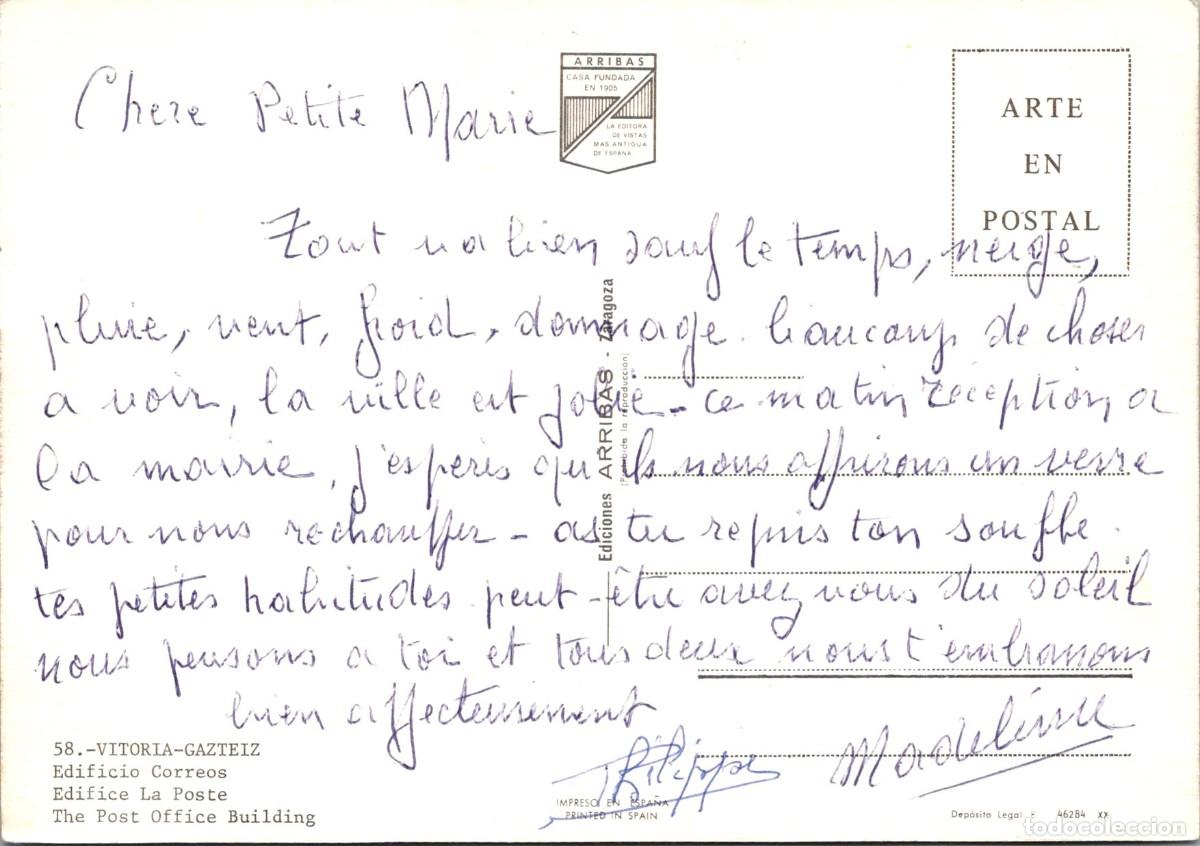 ARRIBAS
CASA FUNDADA
EN 1905
LA EDITORA
DE VISTAS
MAS ANTIGUA
DE ESPAÑA
ARTE
EN
POSTAL
Chere Petite Marie
Tout va bien sauf le temps, neige,
pluie, vent, froid, dommage. beaucoup de choses
a voir, la ville est jolie - ce matin réception a
la mairie, j'esperes qu'ils nous offrirons un verre
pour nous rechauffer - as tu repris ton souffle.
tes petites habitudes peut-être avez vous du soleil
nous pensons a toi et tous deux nous t'embrassons
bien affectueusement
Philippe
Madeleine
Ediciones ARRIBAS - Zaragoza
(Prohibida la reproducción)
58.-VITORIA-GAZTEIZ
Edificio Correos
Edifice La Poste
The Post Office Building
IMPRESO EN ESPAÑA
PRINTED IN SPAIN
Depósito Legal 46284 XX
todocoleccion